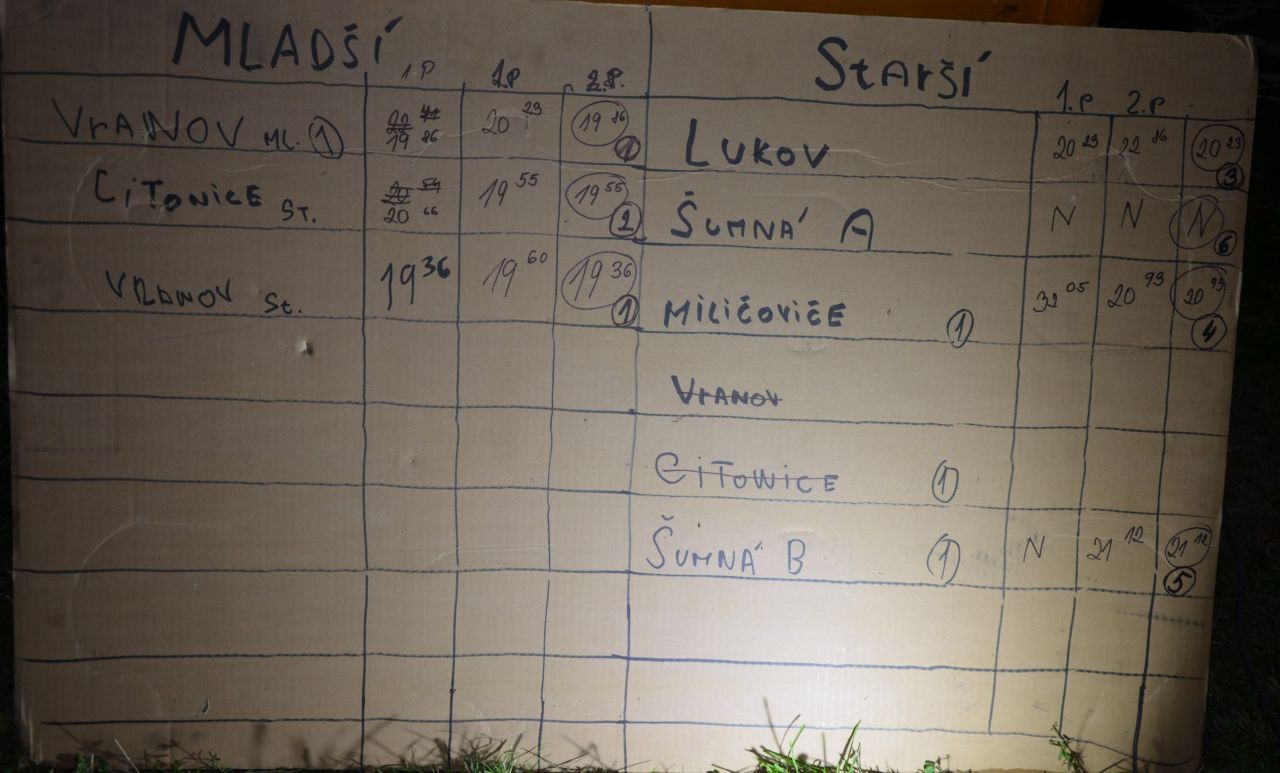 MLADŠÍ
1P 2P 2.P.
VrANOV ML. 1 20 19 86 20 23 19 86 1
CiTONiCE ST. 20 54 20 66 19 55 19 55 2
VRANOV St. 19 36 19 60 19 36 1
StArší
1.P 2.P
LUKOV 20 23 22 86 20 23 3
ŠUMNÁ A N N N 6
MiLiČoViČE 1 32 05 20 93 20 93 4
VrANOV
CiTONiCE 1
ŠUMNÁ B 1 N 21 12 21 12 5